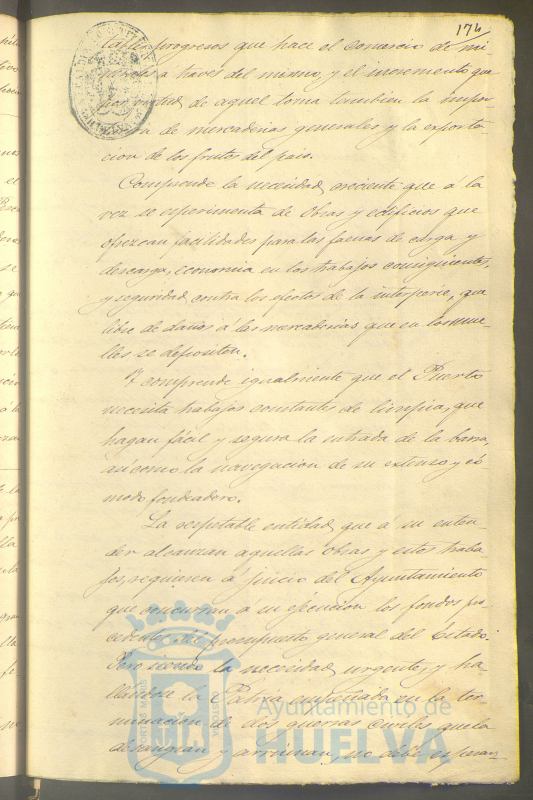 174
tables progresos que hace el comercio de mi
nerales a traves del mismo, y el incremento que
por virtud de aquel toma tambien la impor
de mercaderias generales y la exporta
cion de los frutos del pais.
Comprende la necesidad creciente que á la
vez se esperimenta de obras y edificios que
ofrezcan facilidades para las faenas de carga y
descarga, economia en los trabajos consiguientes,
y seguridad contra los efectos de la interperie, que
libre de daños á las mercaderias que en los mue-
lles se depositen.
Y comprende igualmente que el Puerto
necesita trabajos constantes de limpia, que
hagan fácil y segura la entrada de la barra,
asi como la navegacion de su extenso y có
modo fondeadero.
La respetable entidad que á su enten-
der alcanzan aquellas obras y estos traba-
jos, requieren á juicio del Ayuntamiento
que concurran á su ejecucion los fondos pro
cedentes del presupuesto general del Estado.
Pero siendo la necesidad urgente, y ha
llándose la Patria empeñada en la ter
minacion de dos guerras civiles que la
desangran y arruinan, no debe esperar
Ayuntamiento de
HUELVA